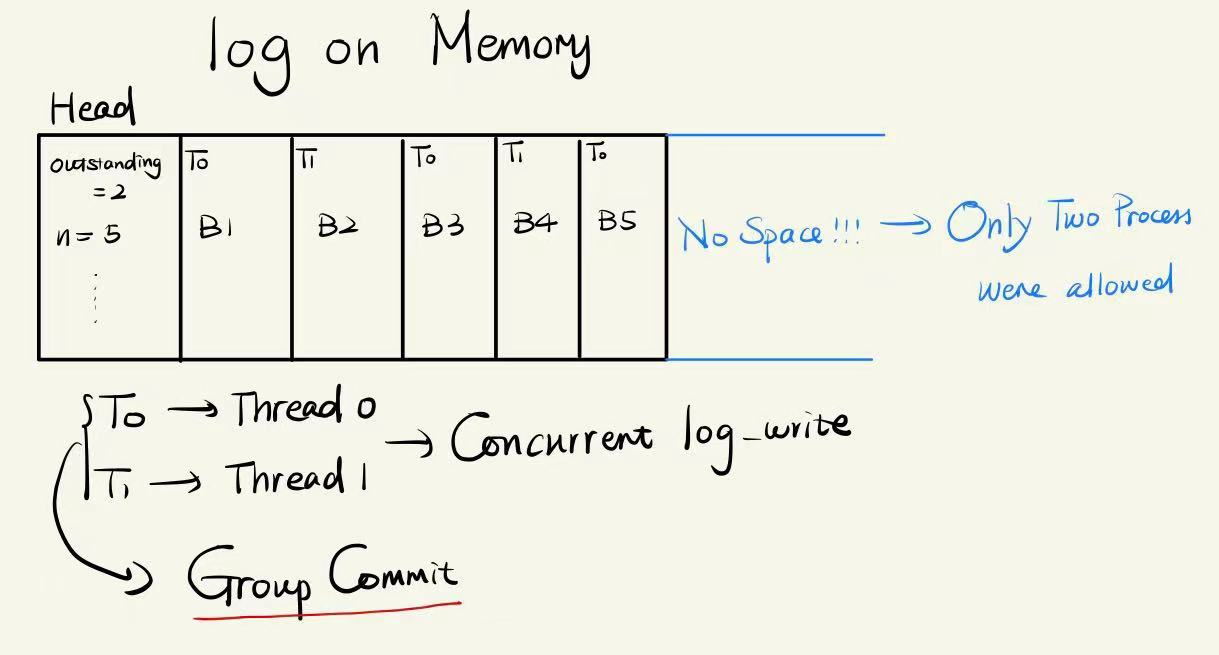 log on Memory
Head
outstanding
= 2
n = 5
T0
B1
T1
B2
T0
B3
T1
B4
T0
B5
No Space!!! → Only Two Process
were allowed
T0 → Thread 0
T1 → Thread 1
→ Concurrent log_write
Group Commit